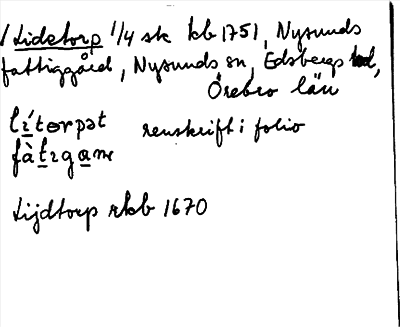 / Lidetorp 1/4 sk kb 1751, Nysunds
fattiggård, Nysunds sn, Edsbergs hd,
Örebro län
lɪ́torpət renskrift i folio
fàtɪgaɴe
Lijdtorp rkb 1670